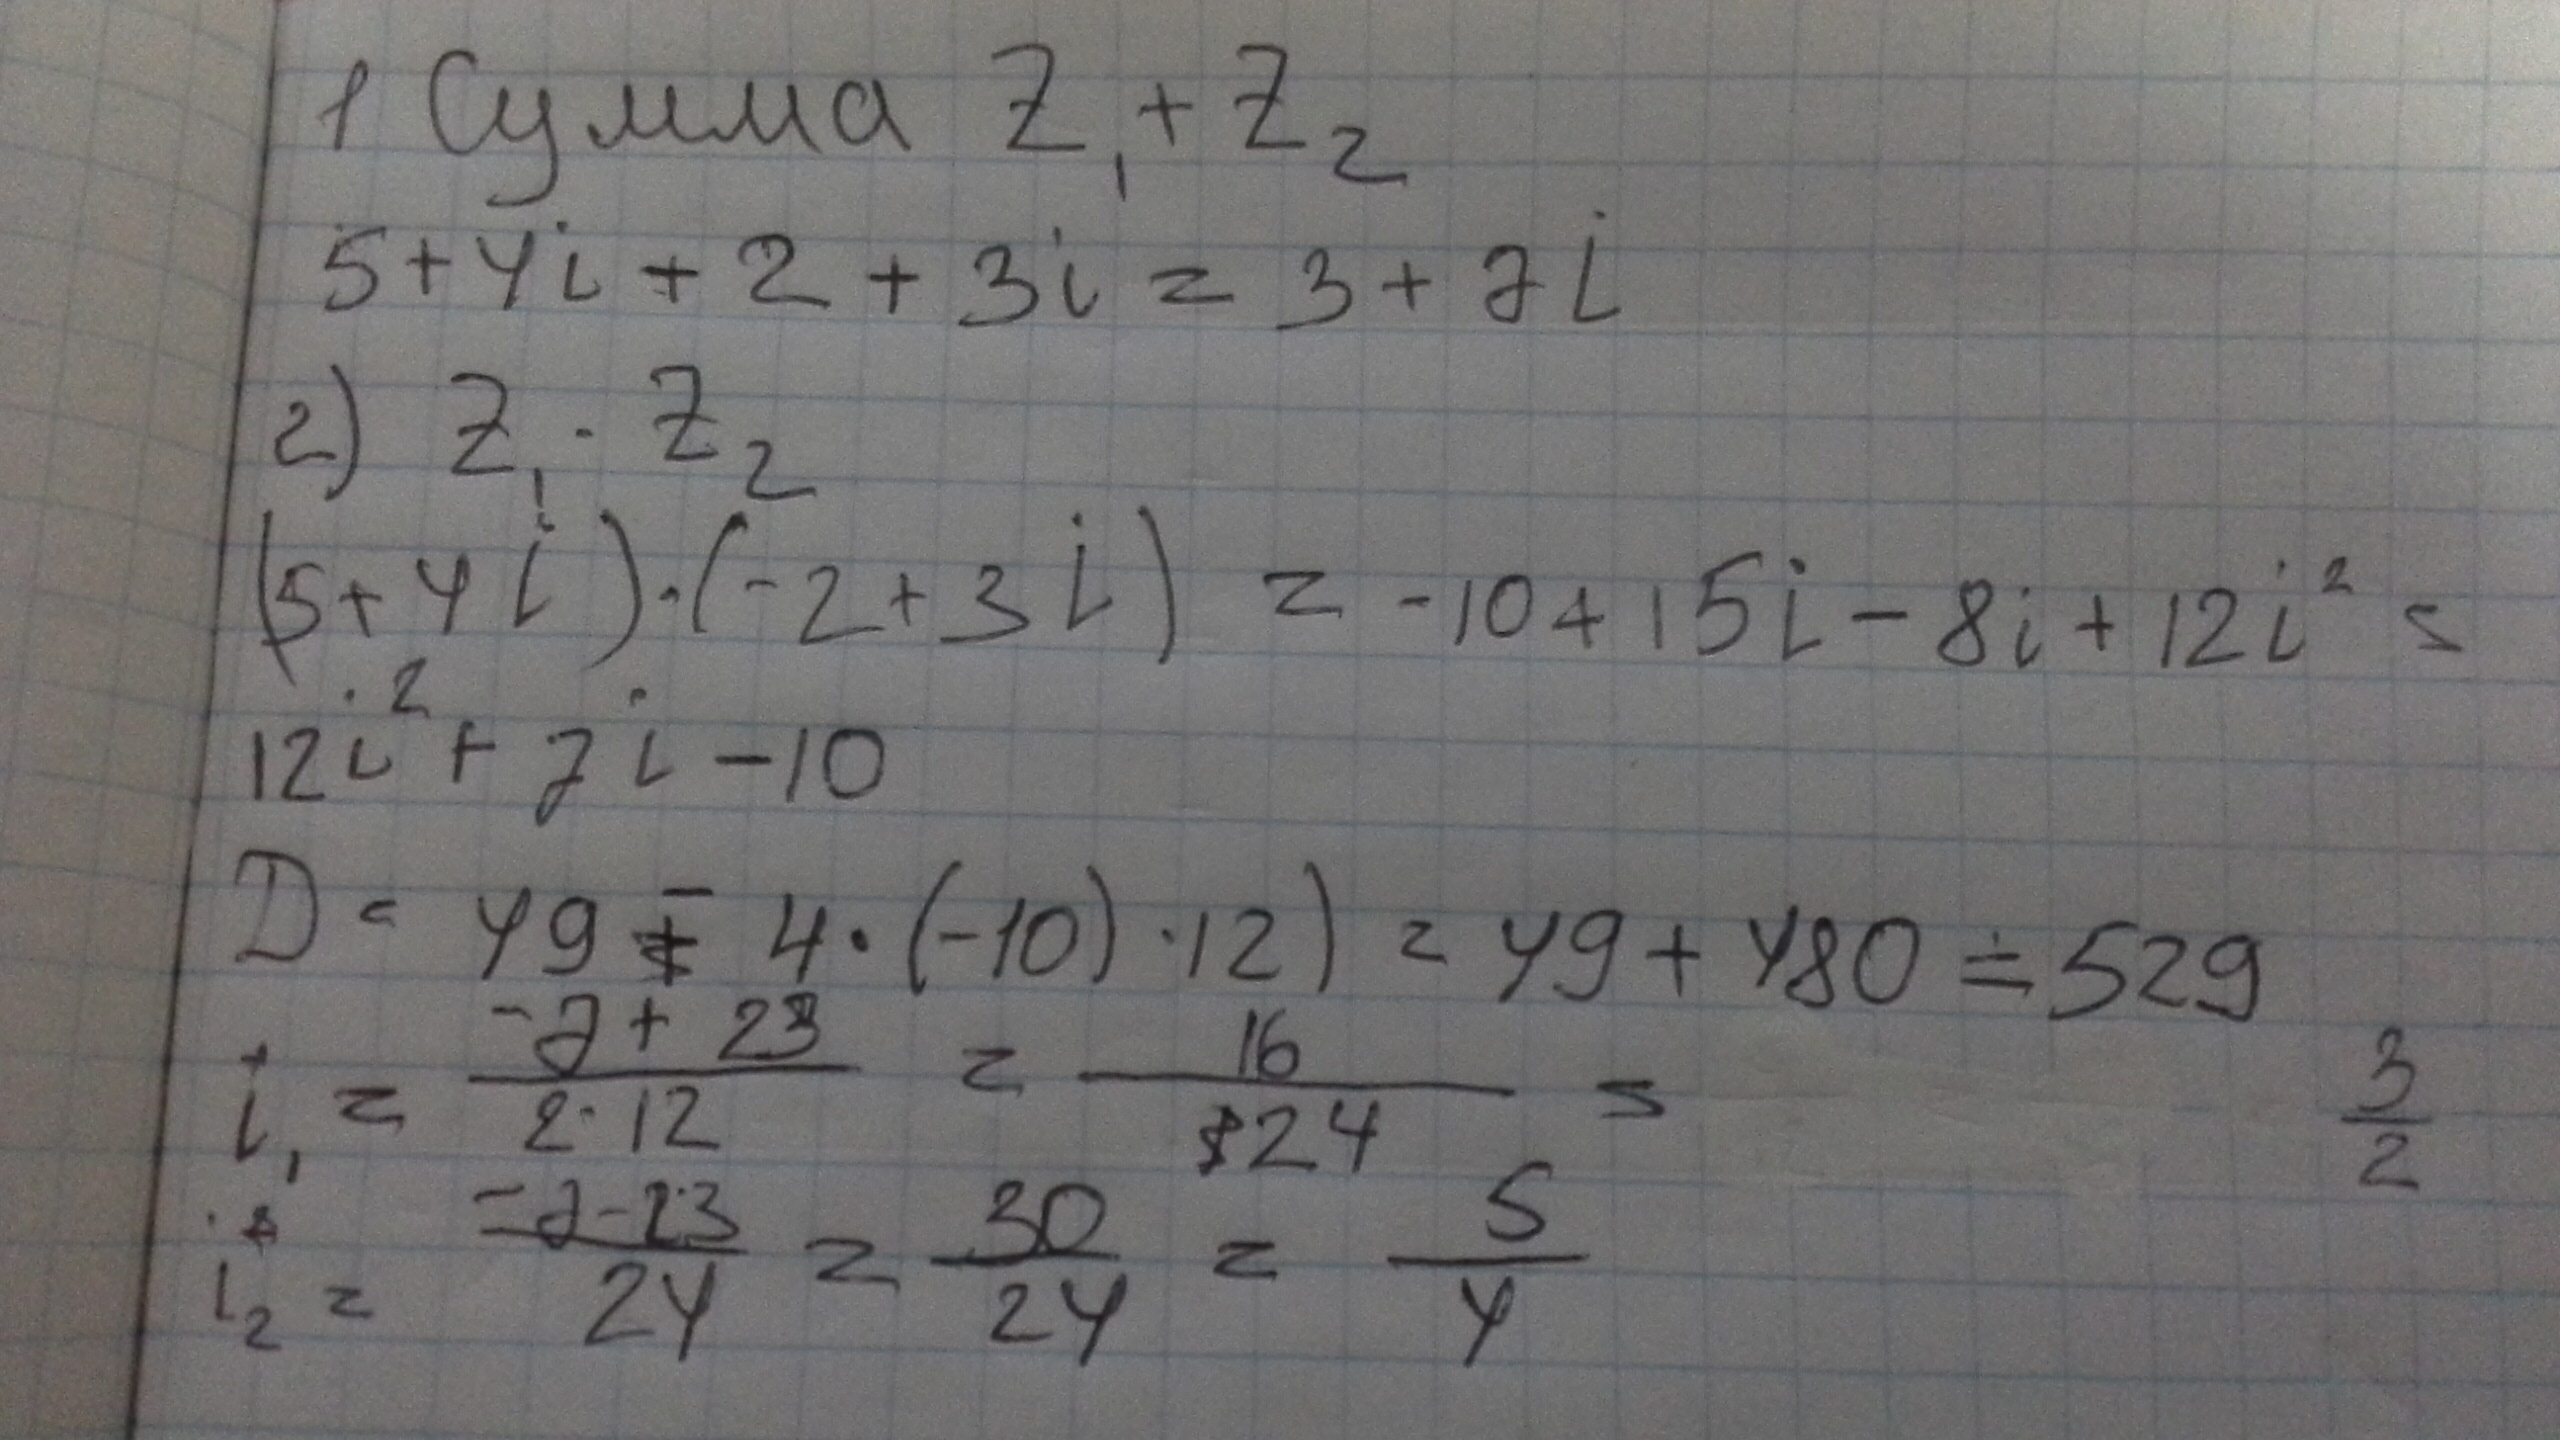 1 Сумма Z₁ + Z₂
5 + 4i + 2 + 3i = 3 + 7i
2) Z₁ · Z₂
(5 + 4i) · (-2 + 3i) = -10 + 15i - 8i + 12i² =
12i² + 7i - 10
D = 49 - 4 · (-10) · 12) = 49 + 480 = 529
i₁ = (-7 + 23)/(2 · 12) = 16/24 =
3/2
i₂ = (-7 - 23)/24 = 30/24 = 5/4